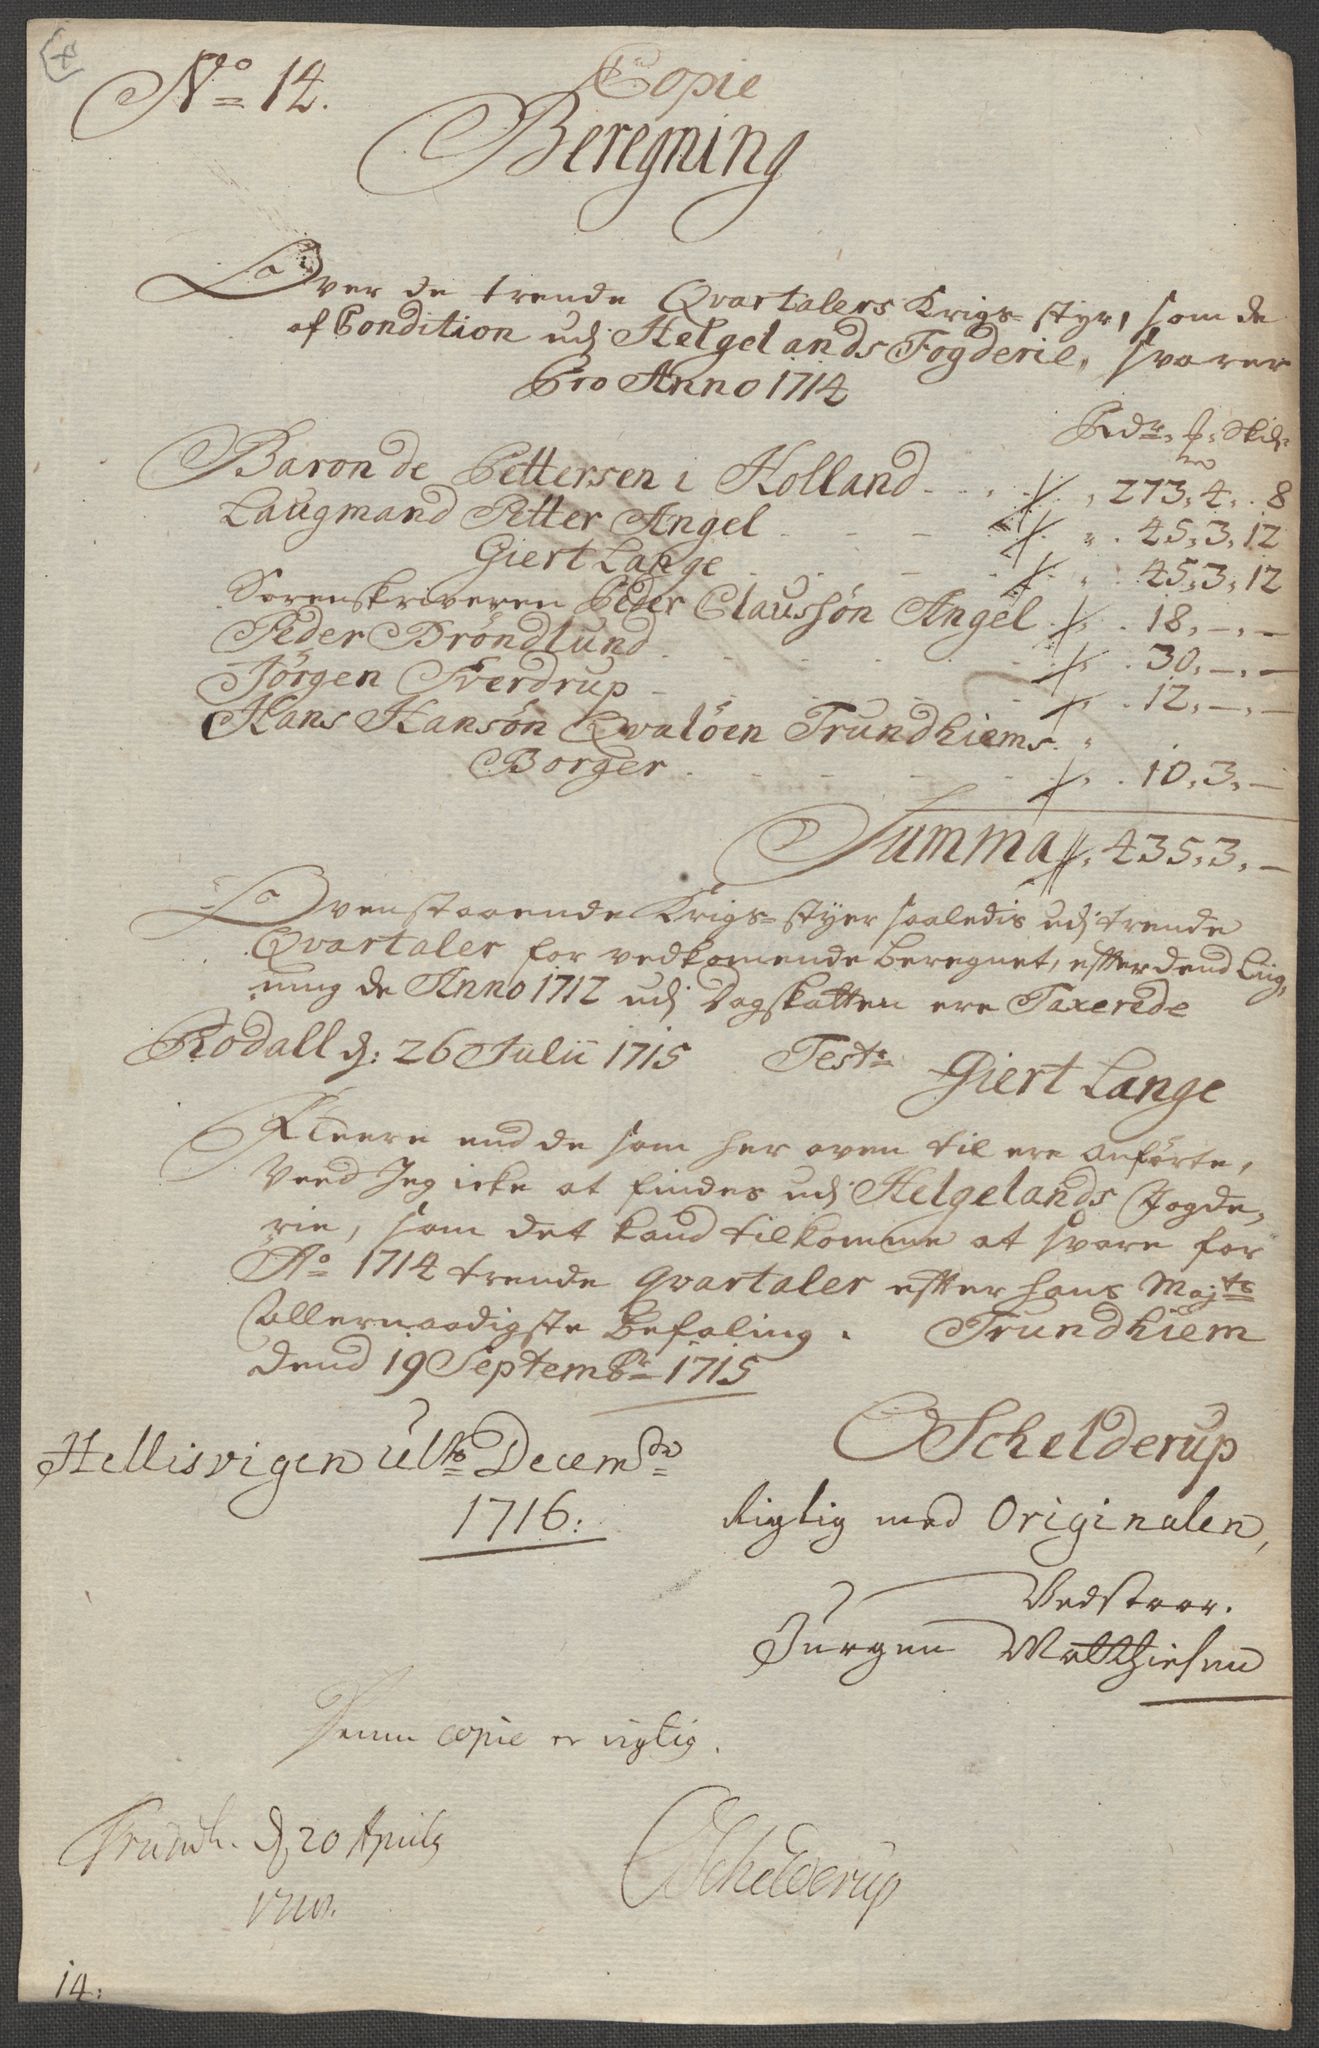 No 14.
Copie
Beregning
Over de trende Qvartalers Krigs-styr, som de
af Condition udj Helgelands Fogderie, svarer
Pro Anno 1714
Rdr. Skil.
Baron de Pettersen i Holland - - - 273. 4. 8
Laugmand Petter Angel - - - 45. 3. 12
Giert Lange - - - 45. 3. 12
Sorenskriveren Peder Claussøn Angel 18. - . -
Peder Brøndlund - - - 30. - . -
Jørgen Sverdrup - - - 12. - . -
Hans Hansøn Qvaløen Trundhiems
Borger - - - 10. 3. -
Summa 435. 3. -
Ovenstaaende Krigs-styer saaledis udj trende
Qvartaler for vedkomende beregnet, effter dend Lig,
ning de Anno 1712 udj Dagskatten ere Taxerede
Rodall d: 26 Julii 1715 Test: Giert Lange
Fleere end de som her oven til ere anførte,
Veed Jeg icke at findes udj Helgelands Fogde,
rie, som det kand tilkomme at svare for
Ao 1714 trende qvartaler effter hans Majts
allernaadigste befaling. Trundhiem
dend 19 Septembr 1715
Schelderup
Hellisvigen ulto Decembr
1716:
Rigtig med Originalen,
Vedstaar.
Jürgen Matthiesen
Denne copie er rigtig.
Trundh. d. 20 Aprily
Schelderup
14: